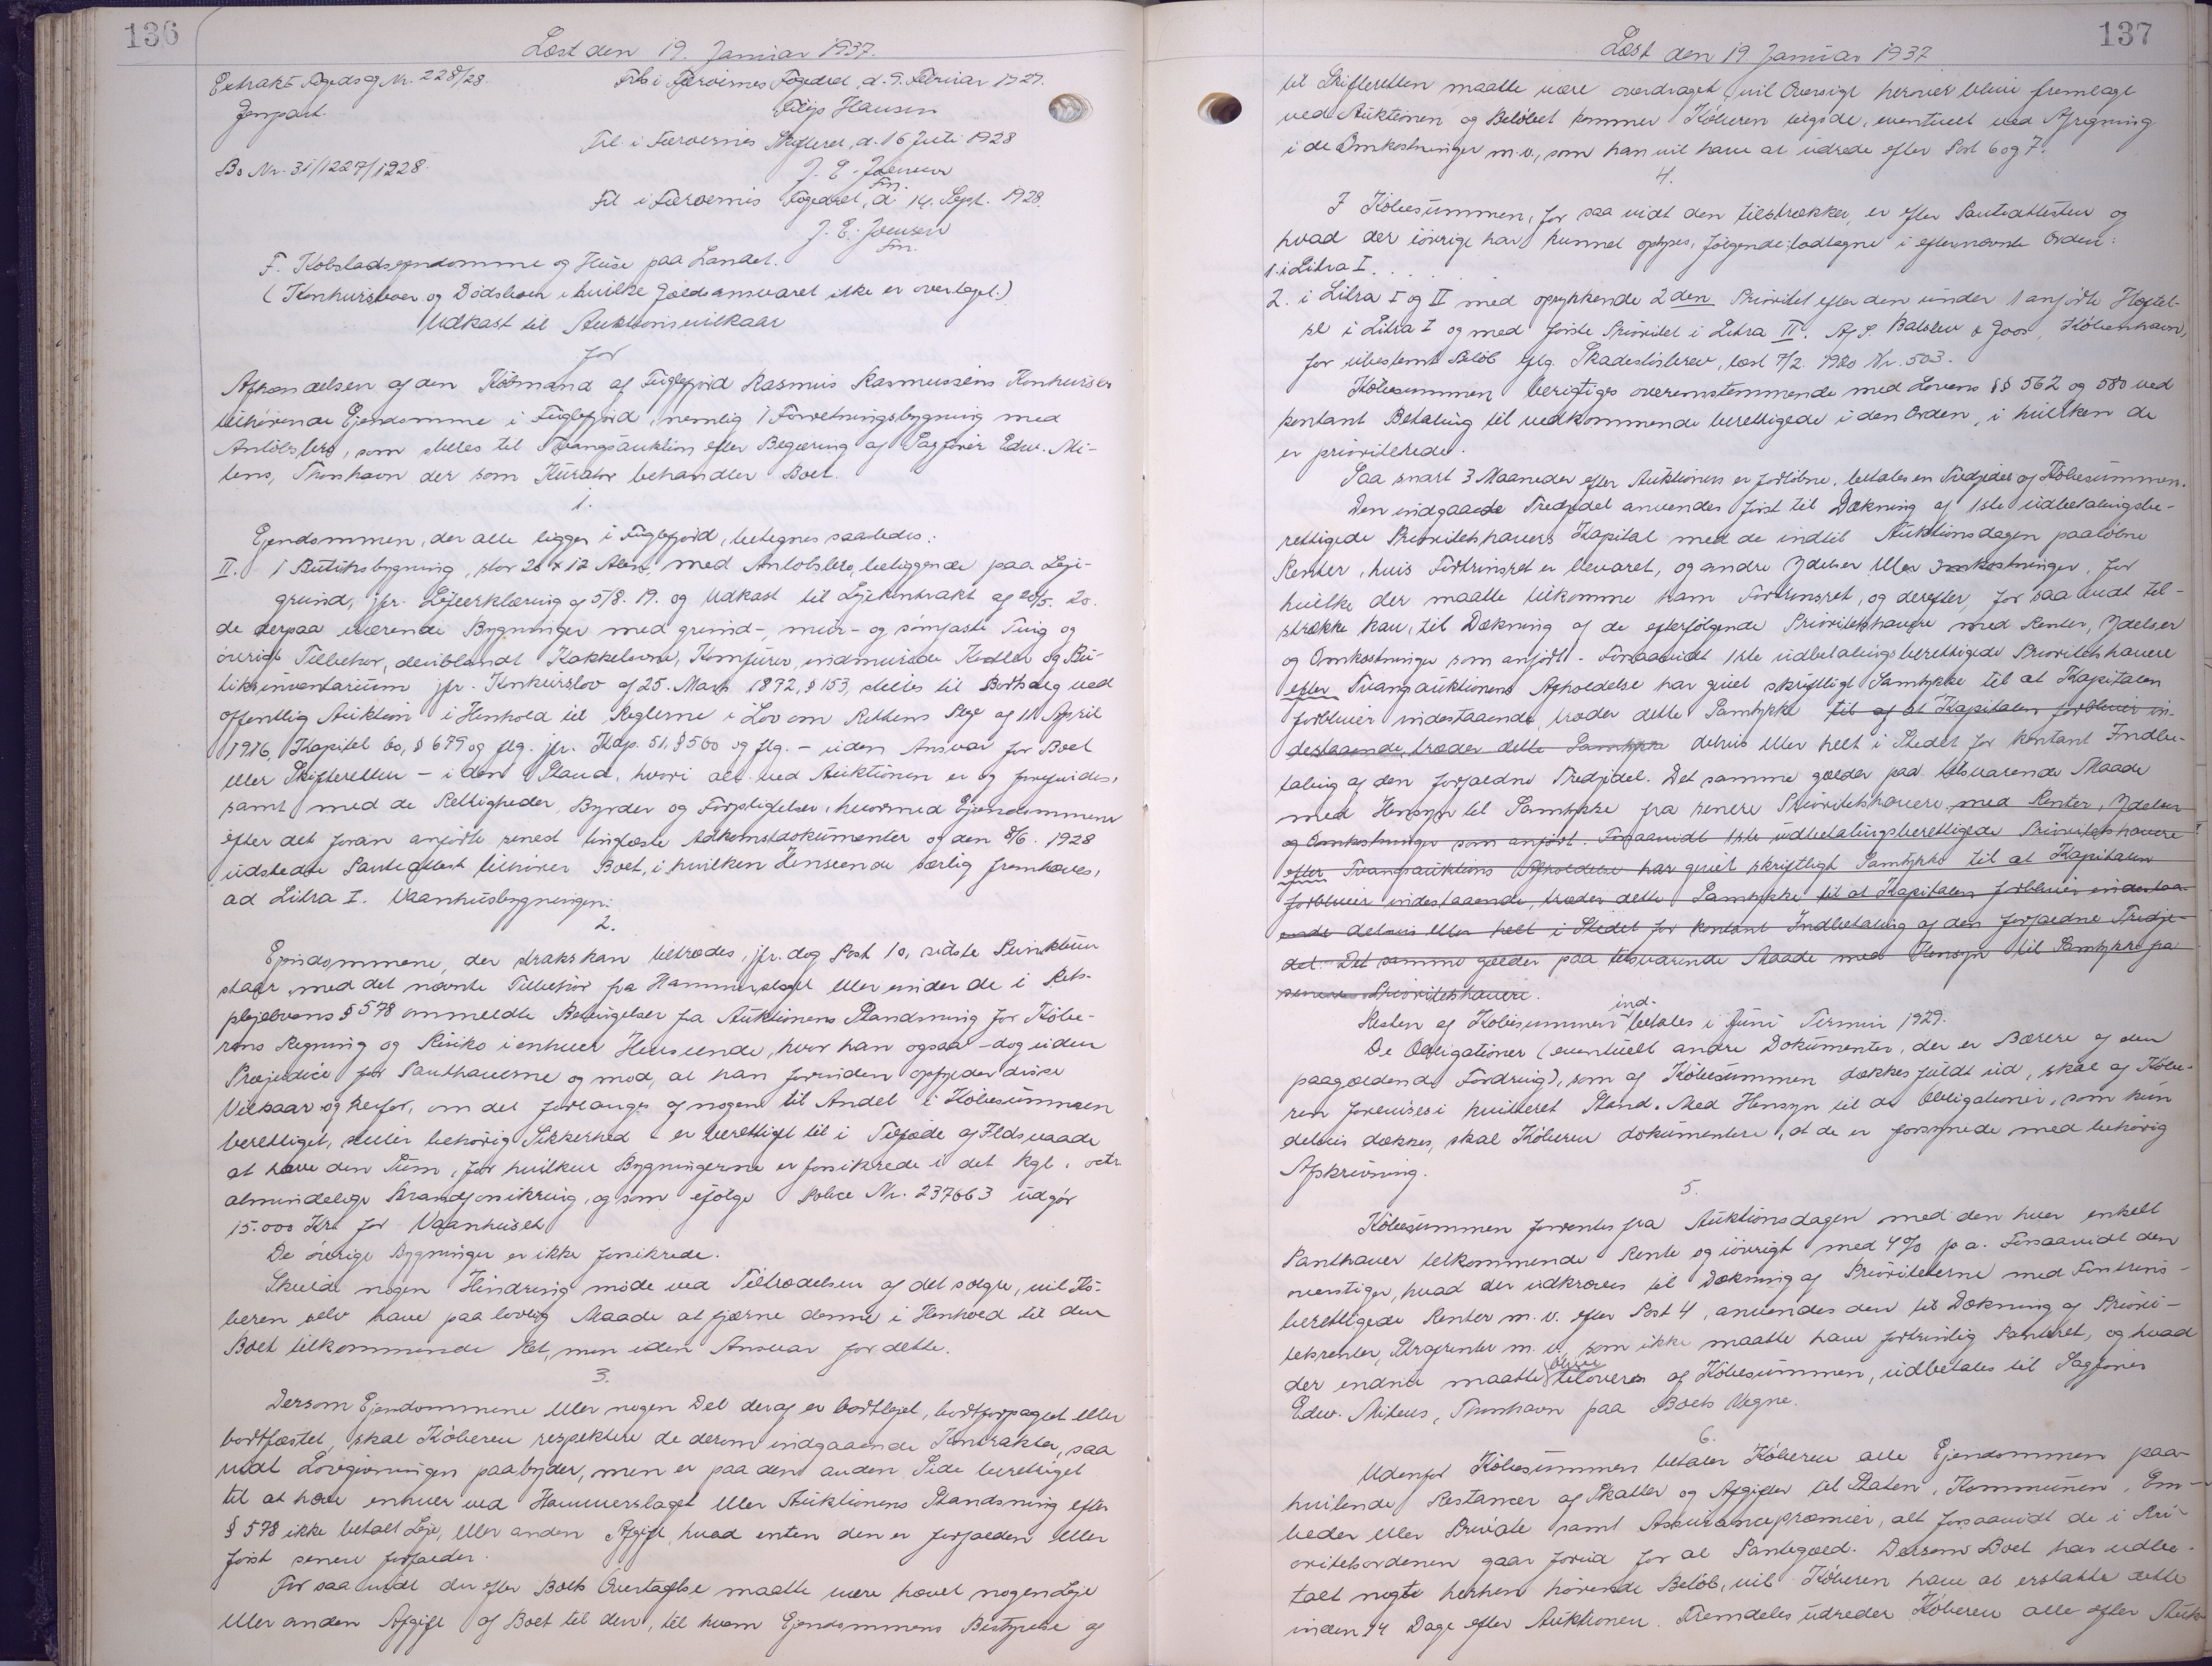 136
Læst den 19. Januar 1937.
Extrakt Fogedsag Nr. 228/28.
Frl. i Færøernes Fogedret, d. 9. Februar 1929.
Genpart
Filip Hansen
Frl. i Færøernes Skifteret, d. 16 Juli 1928
Bo Nr. 31/1227/1928.
J. E. Joensen
Fm.
Frl. i Færøernes Fogedret, d. 14. Sept. 1928.
J. E. Joensen
Fm.
F. Købstadsejendomme og Huse paa Landet.
(Konkursboer og Dødsboer i hvilke Gældsansvaret ikke er overtaget.)
Udkast til Auktionsvilkaar
for
Afhændelsen af den Købmand af Fuglefjord Rasmus Rasmussens Konkursbo
tilhørende Ejendomme i Fuglefjord, nemlig 1 Forretningsbygning med
Anløbsbro, som stilles til Tvangsauktion efter Begæring af Sagfører Edw. Mi-
tens, Thorshavn der som Kurator behandler Boet.
1.
Ejendommen, der alle ligger i Fuglefjord, betegnes saaledes:
II. 1 Butiksbygning, stor 20 x 12 Alen, med Anløbsbro, beliggende paa Leje-
grund, jfr. Lejeerklæring af 5/8. 19. og Udkast til Lejekontrakt af 20/5. 20.
de derpaa værende Bygninger med grund-, mur- og sømfaste Ting og
øvrige Tilbehør, deriblandt Kakkelovne, Komfurer, indmurede Kedler og Bu-
tiksinventarium jfr. Konkurslov af 25. Marts 1872, § 153, stilles til Bortsalg ved
offentlig Auktion i Henhold til Reglerne i Lov om Rettens Pleje af 11 April
1916, Kapitel 60, § 679 og flg. jfr. Kap. 51, § 560 og flg. - uden Ansvar for Boet
eller Skifteretten - i den Stand, hvori alt ved Auktionen er og forefindes,
samt med de Rettigheder, Byrder og Forpligtelser, hvormed Ejendommene
efter det foran anførte senest tinglæste Adkomstdokumenter og den 8/6. 1928
udstedte Panteattest tilhører Boet, i hvilken Henseende særlig fremhæves,
ad Litra I. Vaanhusbygningen:
2.
Ejendommene, der straks kan tiltrædes, jfr. dog Post 10, sidste Punktum
staar med det nævnte Tilbehør fra Hammerslaget eller under de i Rets-
plejelovens § 578 ommeldte Betingelser fra Auktionens Standsning for Købe-
rens Regning og Risiko i enhver Henseende, hvor han ogsaa - dog uden
Præjudice for Panthaverne og mod, at han forinden opfylder disse
Vilkaar og herfor, om det forlanges af nogen til Andel i Købesummen
berettiget, stiller behørig Sikkerhed - er berettiget til i Tilfælde af Ildsvaade
at hæve den Sum, for hvilken Bygningerne er forsikrede i det kgl. octr.
almindelige Brandforsikring, og som ifølge Police Nr. 237663 udgør
15.000 Kr. for Vaanhuset
De øvrige Bygninger er ikke forsikrede.
Skulde nogen Hindring møde ved Tiltrædelsen af det solgte, vil Kø-
beren selv have paa lovlig Maade at fjærne denne i Henhold til den
Boet tilkommende Ret, men uden Ansvar for dette.
3.
Dersom Ejendommene eller nogen Del deraf er bortlejet, bortforpagtet eller
bortfæstet, skal Køberen respektere de derom indgaaende Kontrakter, saa
vidt Lovgivningen paabyder, men er paa den anden Side berettiget
til at hæve enhver ved Hammerslaget eller Auktionens Standsning efter
§ 578 ikke betalt Leje, eller anden Afgift, hvad enten den er forfalden eller
først senere forfalder.
For saa vidt der efter Boets Overtagelse maatte være hævet nogen Leje
eller anden Afgift af Boet til den, til hvem Ejendommens Bestyrelse af
137
Læst den 19 Januar 1937
til Skifteretten maatte være overdraget, vil Oversigt herover blive fremlagt
ved Auktionen og Beløbet kommer Køberen tilgode, eventuelt ved Afregning
i de Omkostninger m.v., som han vil have at udrede efter Post 6 og 7.
4.
I Købesummen, for saa vidt den tilstrækker, er efter Panteattesten og
hvad der iøvrigt har kunnet oplyses, følgende lodtagne i efternævnte Orden:
1. i Litra I. . . . . .
2. i Litra I og II med oprykkende 2den Prioritet efter den under 1 anførte Hæftel-
se i Litra I og med første Prioritet i Litra II. A/S. Balslev & Joos, København,
for ubestemt Beløb iflg. Skadesløsbrev, læst 7/2. 1920 Nr. 503.
Købesummen berigtiges overensstemmende med Lovens §§ 562 og 580 ved
kontant Betaling til vedkommende berettigede i den Orden, i hvilken de
er prioriterede.
Saa snart 3 Maaneder efter Auktionens er forløbne, betales en Tredjedel af Købesummen.
Den indgaaede Tredjedel anvendes først til Dækning af 1ste udbetalingsbe-
rettigede Prioritetshavers Kapital med de indtil Auktionsdagen paaløbne
Renter, hvis Fortrinsret er bevaret, og andre Ydelser eller Omkostninger, for
hvilke der maatte tilkomme ham Fortrinsret, og derefter, for saa vidt til-
strække kan, til Dækning af de efterfølgende Prioritetshavere med Renter, Ydelser
og Omkostninger som anført. Forsaavidt 1ste udbetalingsberettigede Prioritetshavere
efter Tvangsauktionens Afholdelse har givet skriftligt Samtykke til at Kapitalen
forbliver indestaaende, træder dette Samtykke til af at Kapitalen forbliver in-
destaaende, træder dette Samtykke delvis eller helt i Stedet for kontant Indbe-
taling af den forfaldne Tredjedel. Det samme gælder paa tilsvarende Maade
med Hensyn til Samtykke fra senere Prioritetshavere med Renter, Ydelser
og Omkostninger som anført. Forsaavidt 1ste udbetalingsberettigede Prioritetshavere
efter Tvangsauktions Afholdelse har givet skriftligt Samtykke til at Kapitalen
forbliver indestaaende, træder dette Samtykke til at Kapitalen forbliver indestaa-
ende delvis eller helt i Stedet for kontant Indbetaling af den forfaldne Tredje-
del. Det samme gælder paa tilsvarende Maade med Hensyn til Samtykke fra
senere Prioritetshavere.
Resten af Købesummen ind-betales i Juni Termin 1929.
De Obligationer (eventuelt andre Dokumenter, der er Bærere af den
paagældende Fordring), som af Købesummen dækkes fuldt ud, skal af Købe-
ren forevises i kvitteret Stand. Med Hensyn til de Obligationer, som kun
delvis dækkes, skal Køberen dokumentere, at de er forsynede med behørig
Afskrivning.
5.
Købesummen forrentes fra Auktionsdagen med den hver enkelt
Panthaver tilkommende Rente og iøvrigt med 4% p.a. Forsaavidt den
overstiger, hvad der udkræves til Dækning af Prioriteterne med Fortrins-
berettigede Renter m.v. efter Post 4, anvendes den til Dækning af Priori-
tetsrenter, Strafrenter m.v., som ikke maatte have fortrinlig Panteret, og hvad
der endnu maatte blive tilovers af Købesummen, udbetales til Sagfører
Edw. Mitens, Thorshavn paa Boets Vegne.
6.
Udenfor Købesummen betaler Køberen alle Ejendommen paa-
hvilende Restancer af Skatter og Afgifter til Staten, Kommunen, Em-
beder eller Private samt Assurancepræmier, alt forsaavidt de i Pri-
oritetsordenen gaar forud for al Pantegæld. Dersom Boet har udbe-
talt nogte herhen hørende Beløb, vil Køberen have at erstatte dette
inden 14 Dage efter Auktionen. Fremdeles udreder Køberen alle efter Auk-